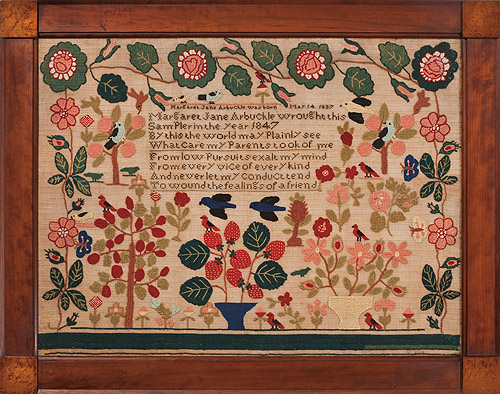 Margaret Jane Arbuckle was born May 14 1837
Margaret Jane Arbuckle wrought this
Sampler in the Year 1847
By this the world may Plainly see
What Care my Parents took of me
From low Pursuits exalt my mind
From every vice of every kind
And never let my Conduct tend
To wound the fealings of a friend